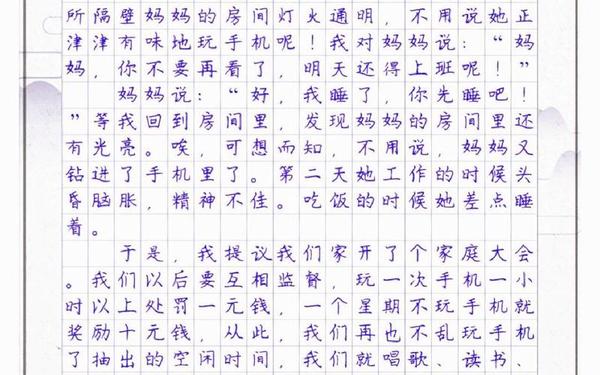 所隔壁妈妈的房间灯火通明，不用说她正
津津有味地玩手机呢！我对妈妈说：“妈
妈，你不要再看了，明天还得上班呢！”
妈妈说：“好，我睡了，你先睡吧！
”等我回到房间里，发现妈妈的房间里还
有光亮。唉，可想而知，不用说，妈妈又
钻进了手机里了。第二天她工作的时候头
昏脑胀，精神不佳。吃饭的时候她差点睡
着。
于是，我提议我们家开了个家庭大会
。我们以后要互相监督，玩一次手机一小
时以上处罚一元钱，一个星期不玩手机就
奖励十元钱，从此，我们再也不乱玩手机
了抽出的空闲时间，我们就唱歌、读书、